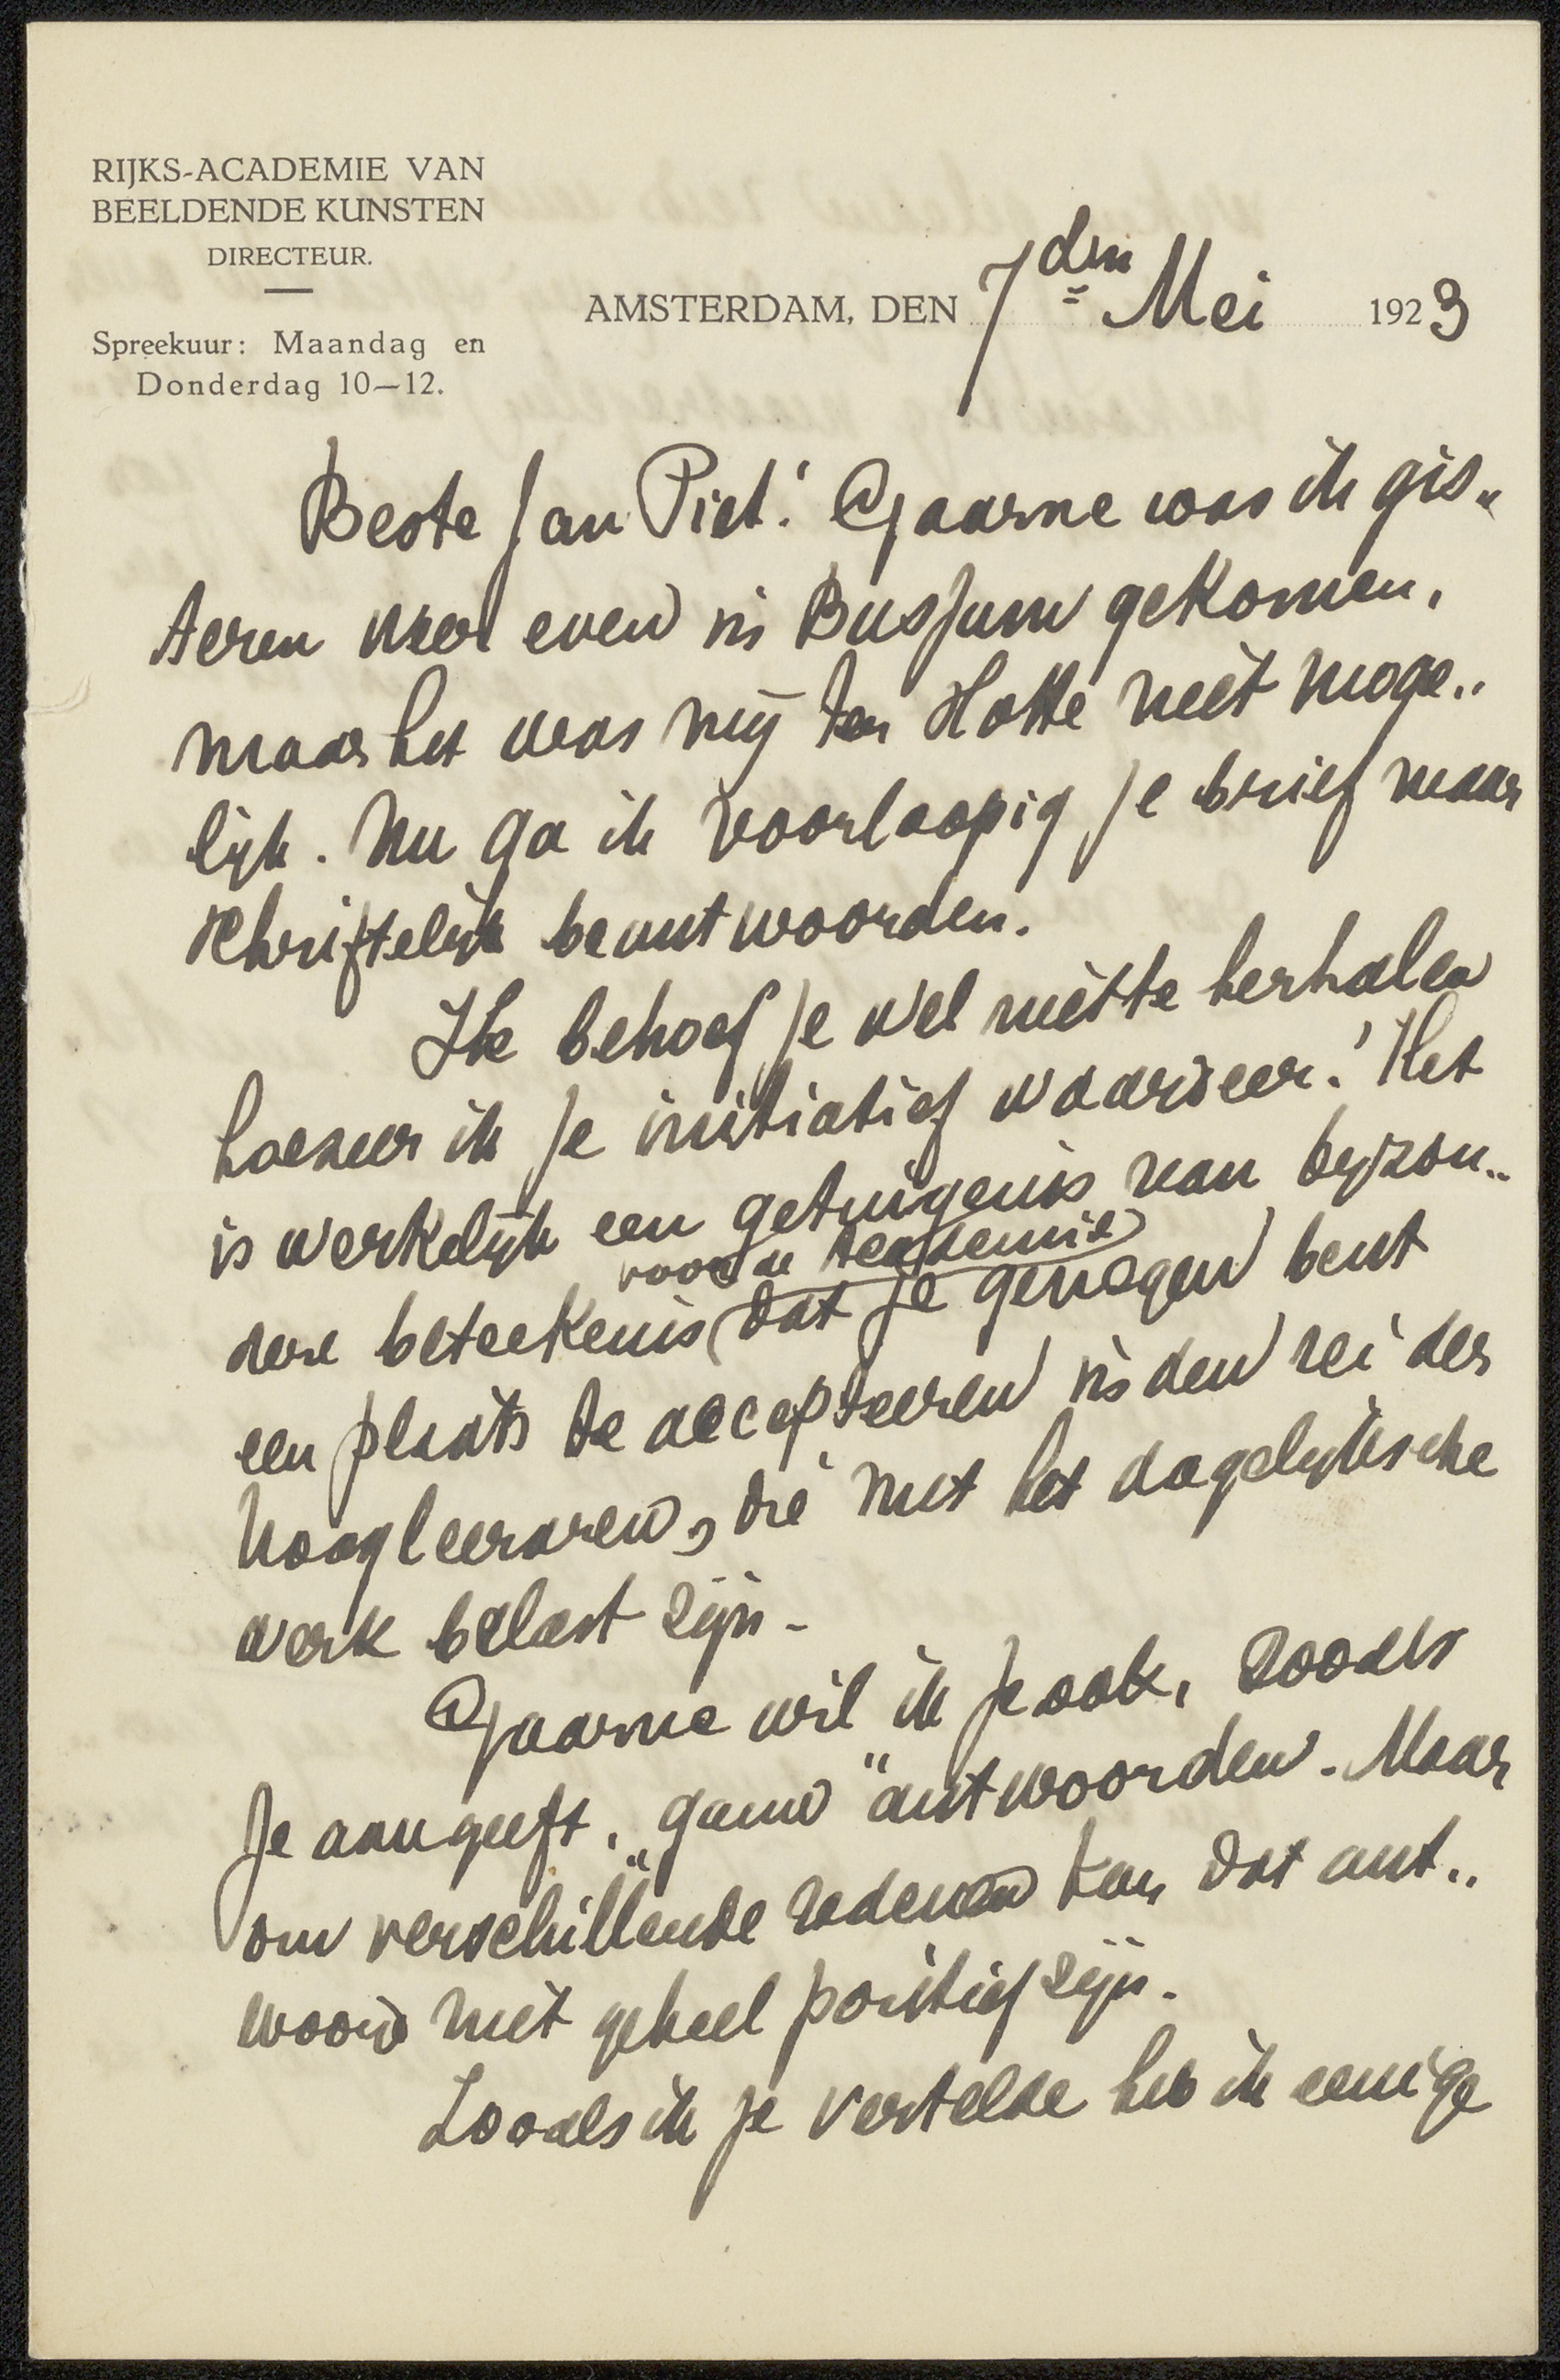 RIJKS-ACADEMIE VAN
BEELDENDE KUNSTEN
DIRECTEUR.
Spreekuur: Maandag en
Donderdag 10—12.
AMSTERDAM, DEN 7den Mei 1923
Beste Jan Piet! Gaarne was ik gis„
teren weer even in Bussum gekomen,
maar het was mij ten slotte niet moge„
lijk. Nu ga ik voorloopig je brief maar
schriftelijk beantwoorden.
Ik behoef je wel niet te herhalen
hoezeer ik je initiatief waardeer! Het
is werkelijk een getuigenis van bijzon„
voor de Academie
dere beteekenis dat je genegen bent
een plaats te accepteeren in den rei der
hoogleeraren, die met het dagelijksche
werk belast zijn.
Gaarne wil ik je ook, zooals
je aangeeft, „gauw" antwoorden. Maar
om verschillende redenen kan dat ant„
woord niet geheel positief zijn.
Zooals ik je vertelde heb ik eenige